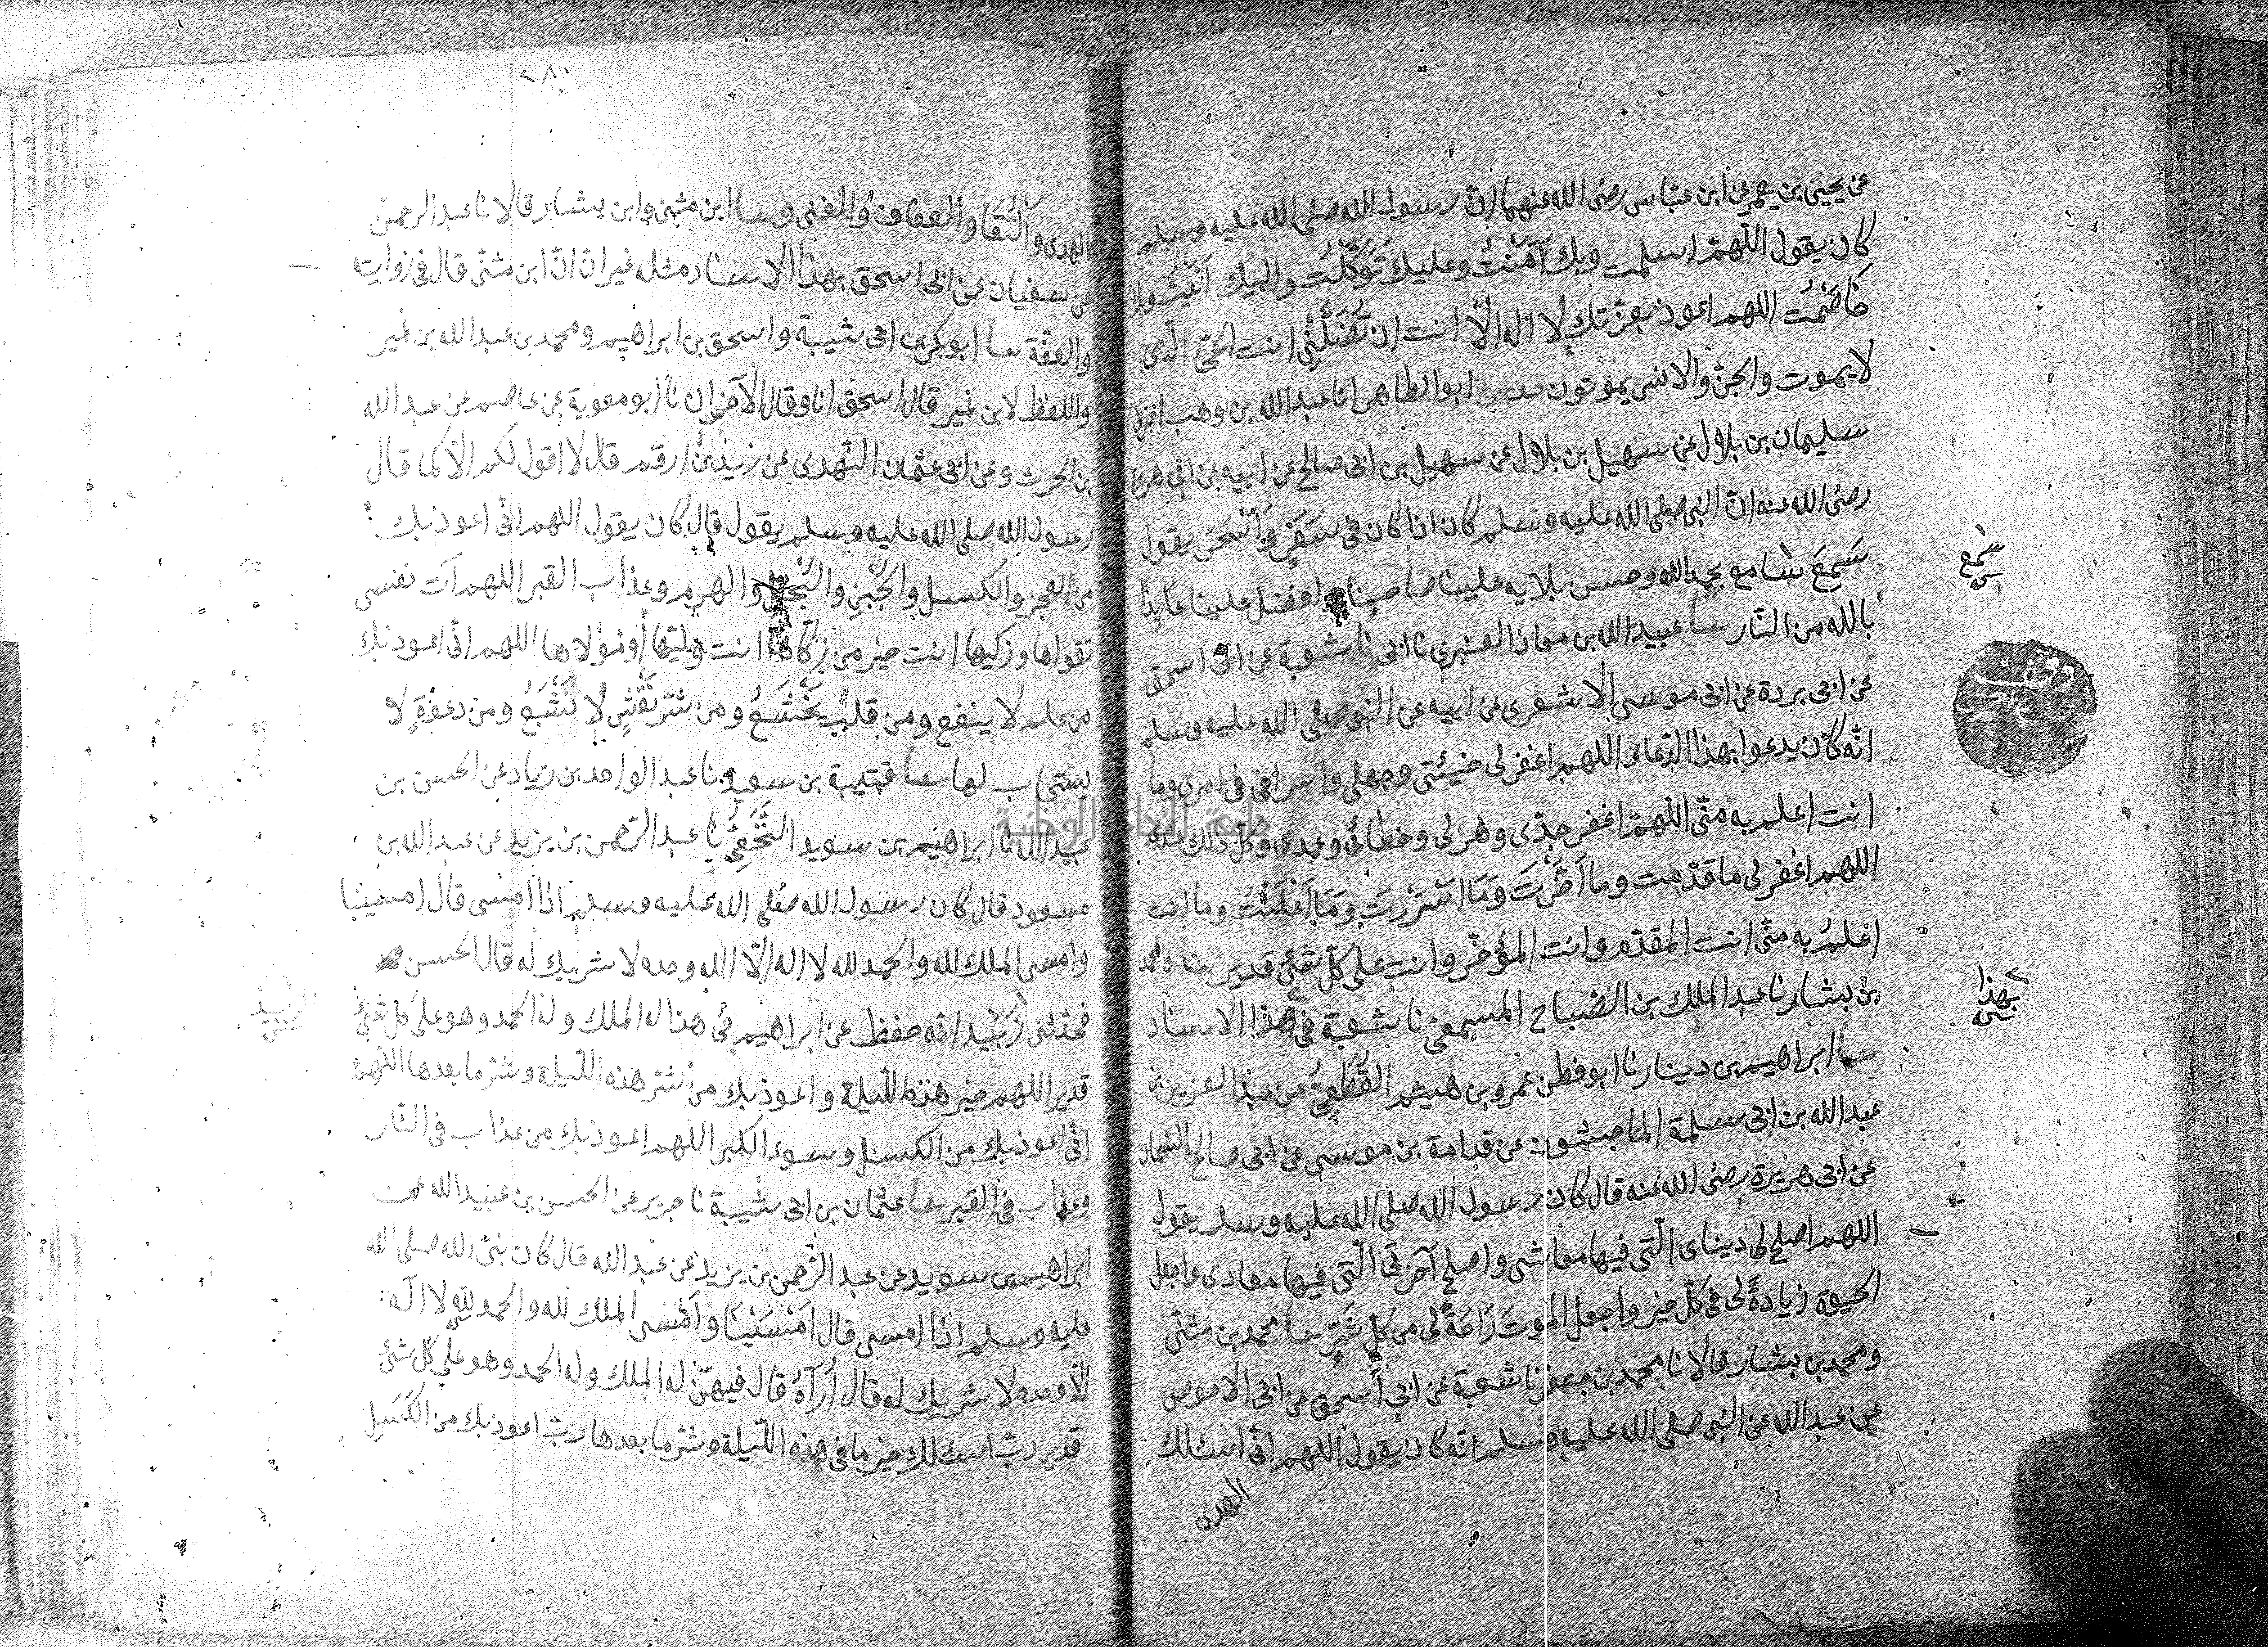 عن يحيى بن يعمر عن ابن عباس رضى الله عنهما ان رسول الله صلى الله عليه وسلم
كان يقول اللهم اسلمت وبك آمَنْتُ وعليك تَوَكَّلْتُ واليك اَنَبْتُ وبك
خَاصَمْتُ اللهم اعوذ بعزتك لا اله الّا انت ان تُضِلَّنِى انت الحىّ الّذى
لا يموت والجنّ والانس يموتون حدثنى ابو الطاهر انا عبد الله بن وهب اخبرنى
سليمان بن بلال عن سهيل بن بلال عن سهيل بن ابى صالح عن ابيه عن ابى هريرة
رضى الله عنه انّ النبى صلى الله عليه وسلم كان اذا كان فى سَفَرٍ وَاَسْحَرَ يقول
سَمِعَ سامع بحمد الله وحسن بلايه علينا صاحبنا وافضل علينا عايِذًا
بالله من النّار حدثنا عبيد الله بن معاذ العنبرى نا ابى نا شعبة عن ابى اسحق
عن ابى بردة عن ابى موسى الاشعرى عن ابيه عن النبى صلى الله عليه وسلم
انّه كان يدعوا بهذا الدّعاء اللهم اغفر لى خيئتى وجهلى واسرافى فى امرى وما
انت اعلم به منّى اللهم اغفر جدّى وهزلى وخطائى وعمدى وكلّ ذلك عندى
اللهم اغفر لى ما قدّمت وما اَخَّرْتَ وَمَا اَسْرَرْتَ وَمَا اَعْلَنْتَ وما انت
اعلمُ به منّى انت المقدّم وانت المؤخّر وانت على كلّ شئ قدير حدثناه محمد
بن بشار نا عبد الملك بن الصّباح المسمعىّ نا شعبة فى هذا الاسناد
حدثنا ابراهيم بن دينار نا ابو قطن عمرو بن هيثم القُطَعِىُّ عن عبد العزيز بن
عبد الله بن ابى سلمة الماجشون عن قدامة بن موسى عن ابى صالح السّمان
عن ابى هريرة رضى الله عنه قال كان رسول الله صلى الله عليه وسلم يقول
اللهم اصلح لى ديناى الّتى فيها معاشى واصلح آخرتى الّتى فيها معادى واجعل
الحيوة زيادةً لى فى كلّ خير واجعل الموتَ رَاحَةً لى من كلّ شَرٍّ حدثنا محمد بن مثنّى
ومحمد بن بشار قالا نا محمد بن جعفر نا شعبة عن ابى اسحق عن ابى الاحوص
عن عبد الله عن النبى صلى الله عليه وسلم انه كان يقول اللهم انّى اسئلك
الهدى
سمع
بهذا
٢٨٠
الهدى وَالتُّقَا والعفاف والغنى وحدثنا ابن مثنى وابن بشار قالا نا عبد الرحمن
عن سفيان عن ابى اسحق بهذا الاسناد مثله غير انّ انّ ابن مثنّى قال فى روايته
والعفّة حدثنا ابو بكر بن ابى شيبة واسحق بن ابراهيم ومحمد بن عبد الله بن نمير
واللفظ لابن نمير قال اسحق انا وقال الآخران نا ابو معوية عن عاصم عن عبد الله
بن الحرث وعن ابى عثمان النّهدى عن زيد بن ارقم قال لا اقول لكم الّا كما قال
رسول الله صلى الله عليه وسلم يقول قال كان يقول اللهم انّى اعوذ بك
من العجز والكسل والجُبْنِ والبُخْلِ والهرم وعذاب القبر اللهم آت نفسى
تقواها وزكيها انت خير من زكّاها انت وليّها ومولاها اللهم انّى اعوذ بك
من علم لا ينفع ومن قلب يَخْشَعُ ومن شرّ نَفْسٍ لا تَشْبَعُ ومن دعوَةٍ لا
يستجاب لها حدثنا قتيبة بن سعيد نا عبد الواحد بن زياد عن الحسن بن
عبيد الله نا ابراهيم بن سويد النَّخَعِىُّ نا عبد الرّحمن بن يزيد عن عبد الله بن
مسعود قال كان رسول الله صلى الله عليه وسلم اذا امسى قال امسينا
وامسى الملك لله والحمد لله لا اله الّا الله وحده لا شريك له قال الحسن
فحدّثنى زُبَيْد انّه حفظ عن ابراهيم فى هذا له الملك وله الحمد وهو على كل شئ
قدير اللهم خير هذه اللّيلة واعوذ بك من شرّ هذه اللّيلة وشرّ ما بعدها اللهم
انّى اعوذ بك من الكسل وسوء الكبر اللهم اعوذ بك من عذاب فى النّار
وعذاب فى القبر حدثنا عثمان بن ابى شيبة نا جرير عن الحسن بن عبيد الله عن
ابراهيم بن سويد عن عبد الرّحمن بن يزيد عن عبد الله قال كان نبىّ الله صلى الله
عليه وسلم اذا امسى قال اَمْسَيْنَا واَمْسى الملك لله والحمد لله لا اله
الّا وحده لا شريك له قال اُرَاهُ قال فيهنّ له الملك وله الحمد وهو على كلّ شئ
قدير ربّ اسئلك خير ما فى هذه اللّيلة وشرّ ما بعدها ربّ اعوذ بك من الكَسَلِ
الزبيد
جامعة النجاح الوطنية